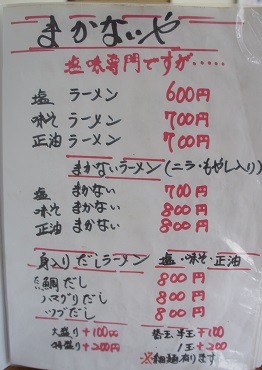 まかないや
塩味専門ですが.....
塩 ラーメン 600円
味そ ラーメン 700円
正油 ラーメン 700円
まかないラーメン(ニラ・もやし入り)
塩 まかない 700円
味そ まかない 800円
正油 まかない 800円
身入りだしラーメン 塩・味そ・正油
鯛だし 800円
ハマグリだし 800円
ツブだし 800円
大盛り +100円 替玉 半玉 +100
特盛り +200円 1玉 +200
※細麺有ります